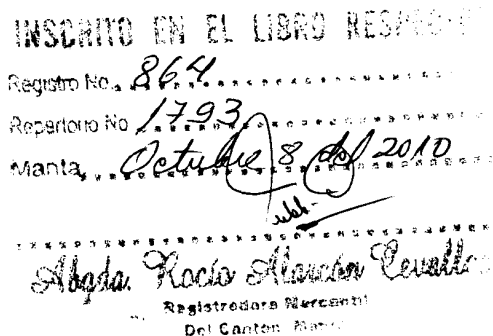 INSCRITO EN EL LIBRO
Registro No. 864
Repertorio No 1793
Manta, Octubre 8 del 2010
Abgda. Rocío Alarcón Cevallos
Registradora Mercantil
Del Canton Manta